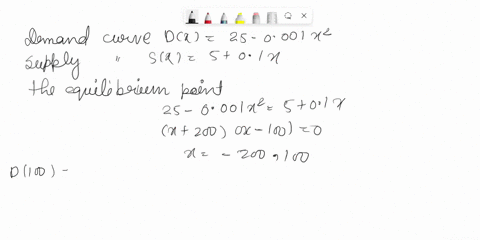 demand curve D(x) = 25 - 0.001x²
supply " S(x) = 5 + 0.1x
the equilibrium point
25 - 0.001x² = 5 + 0.1x
(x + 200) (x - 100) = 0
x = - 200, 100
D(100) -